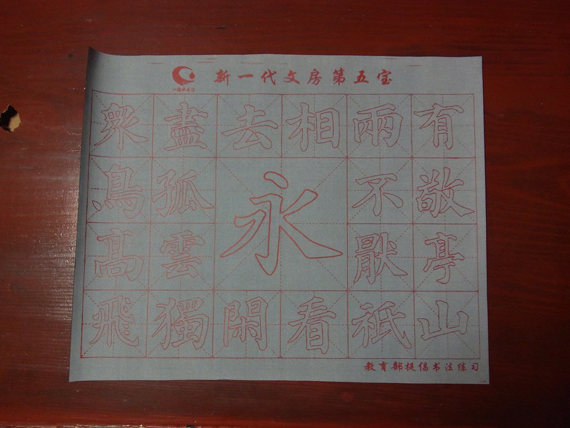 新一代文房第五宝
衆鳥高飛
盡孤雲獨
去閑
永
相看
兩不厭祇
有敬亭山
教育部提倡书法练习